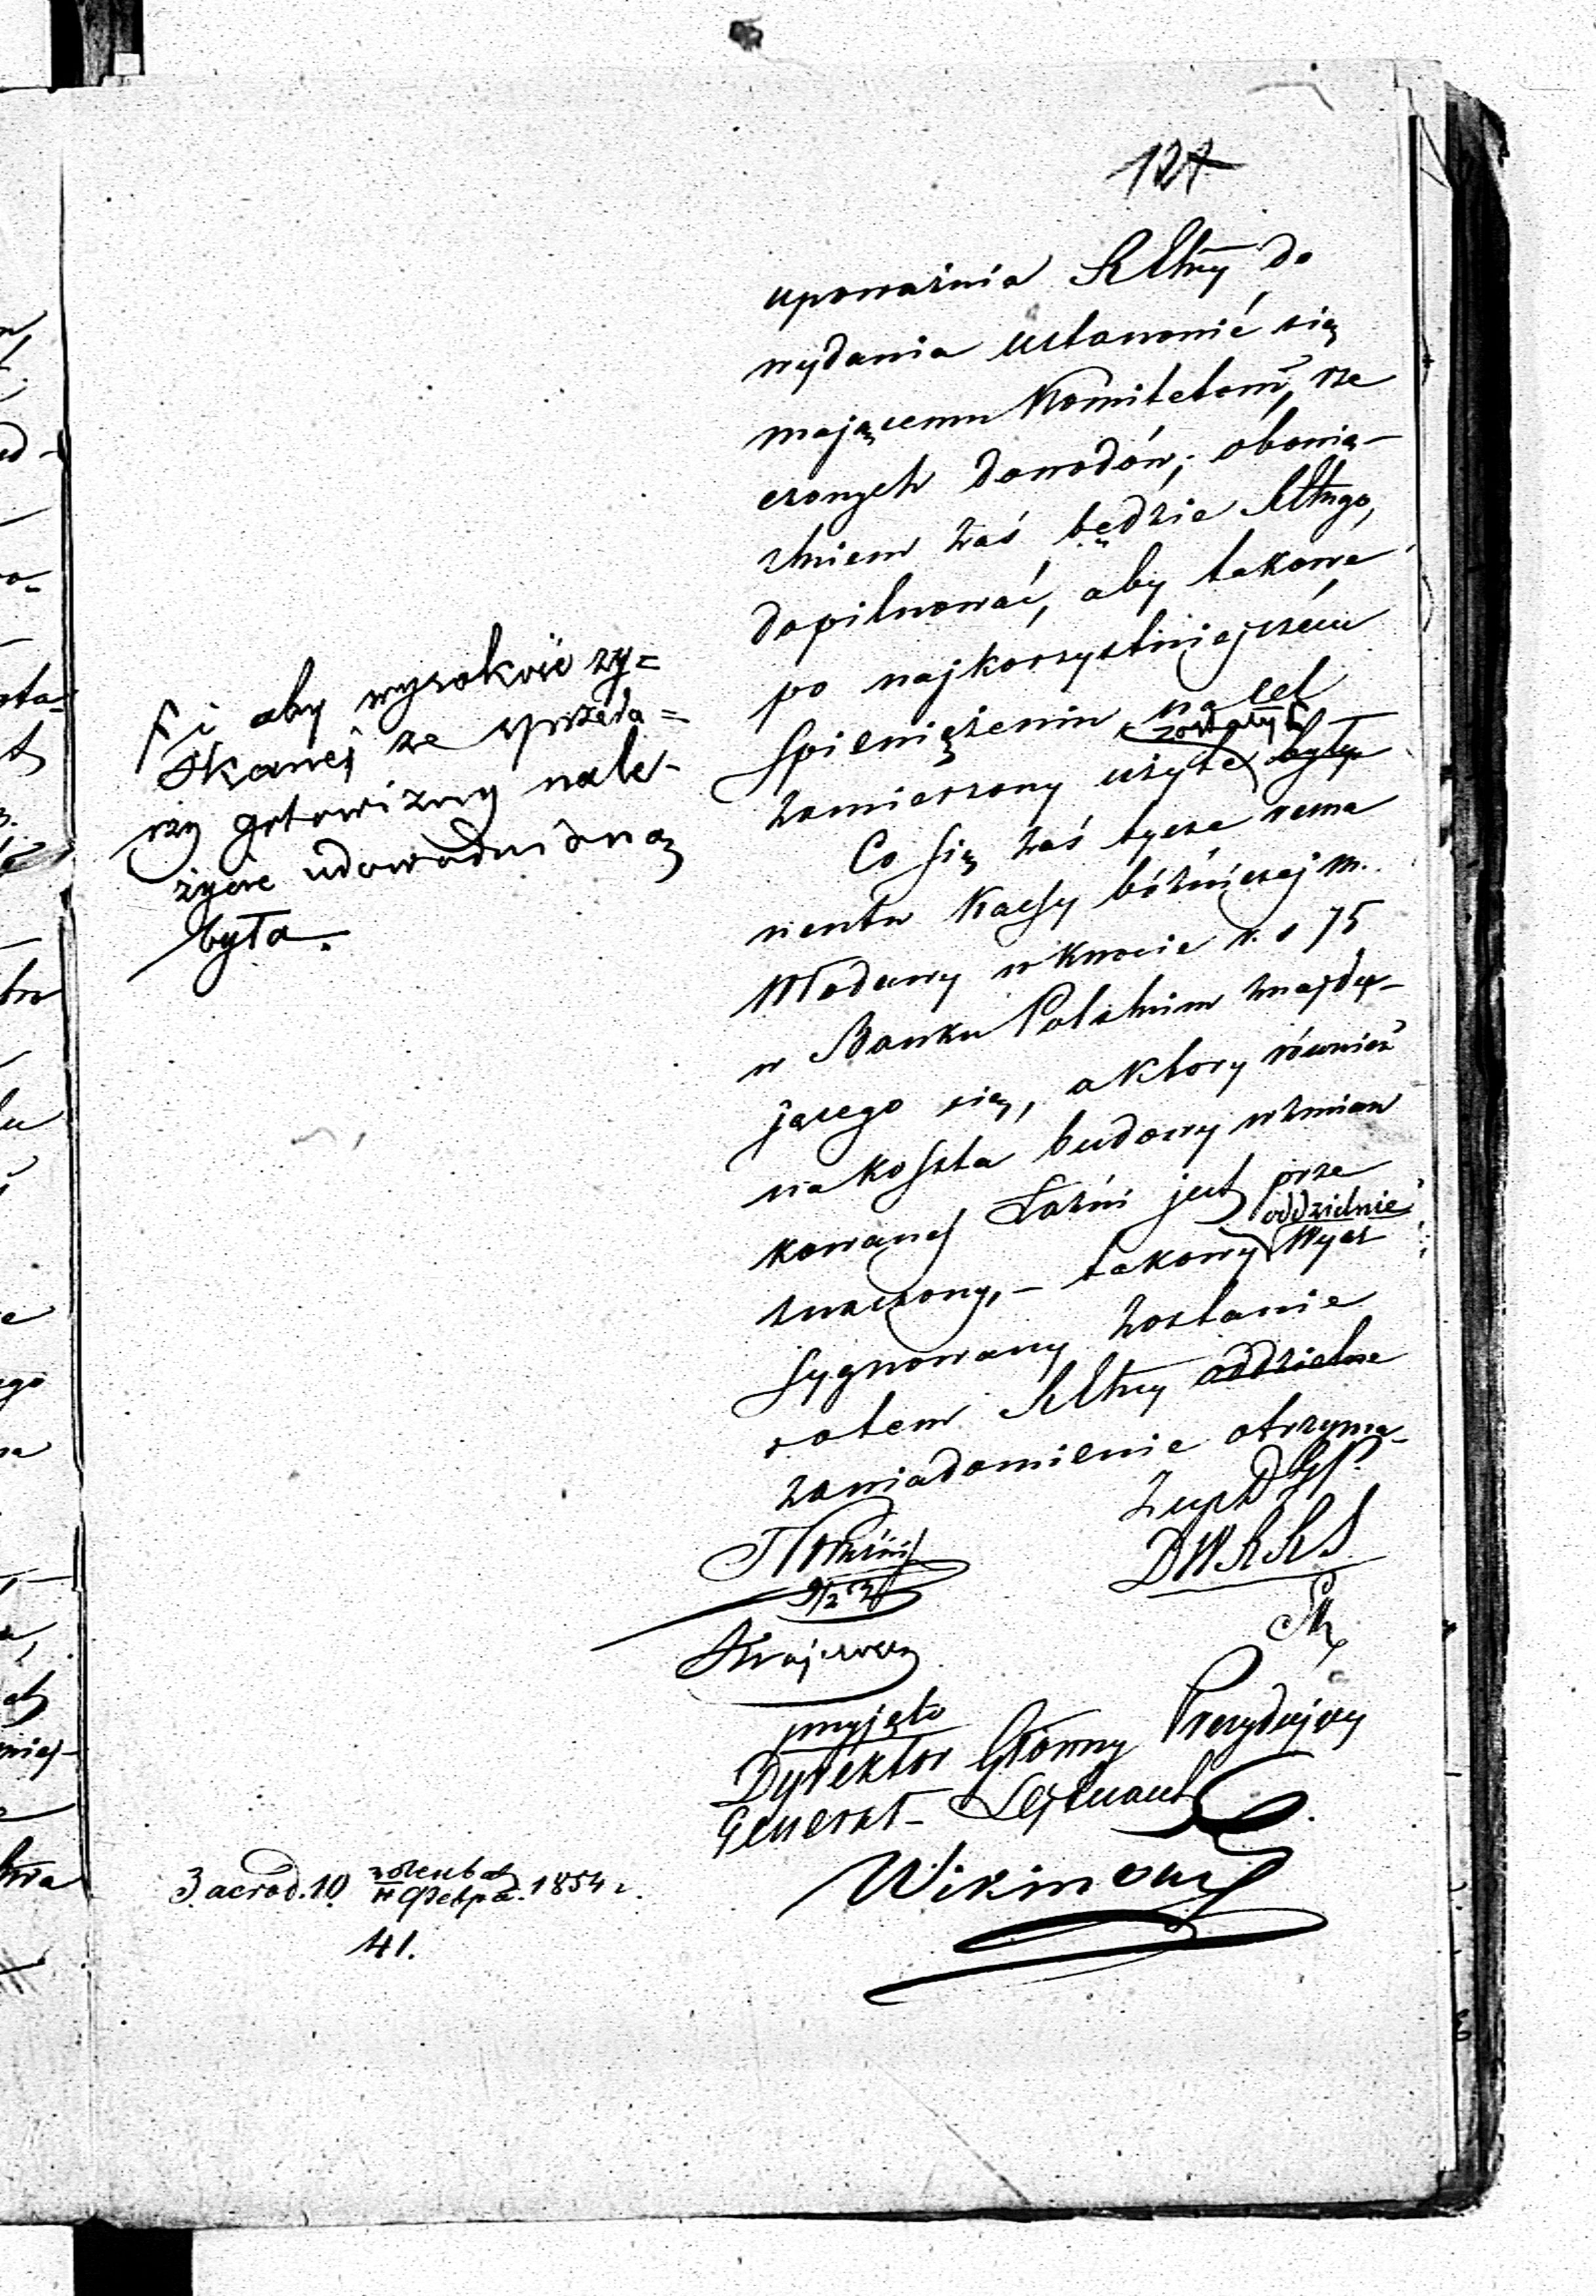 127
upoważnia RGtny do
wydania ustanowić się
mającemu Komitetowi, rze
czonych dowodów; obowią-
zkiem zaś będzie RGtnego,
dopilnować, aby takowe
po najkorzystniejszém
spieniężeniu na cel
zostały
zamierzony użyte były
Co się zaś tycze rema
nentu Kassy bóżniczej m.
Mławy w kwocie r. s 75
w Banku Polskim znajdu-
jącego się, a który również
na koszta budowy wzmian
kowanej Łaźni jest prze
oddzielnie
znaczony, - takowy wyas
sygnowany zostanie
o tem RGtny oddzielne
zawiadomienie otrzyma-
i aby wysokość zy=
skanej ze sprzeda=
ży gotowizny nale-
życie udowodnioną
była.
DWRKS
9/2
Krajewski
przyjęto
Dyrektor Główny Prezydujący
Generał-Lejtnant
Wikinski
Засѣд. 10 Февра. 1854 г.
41.